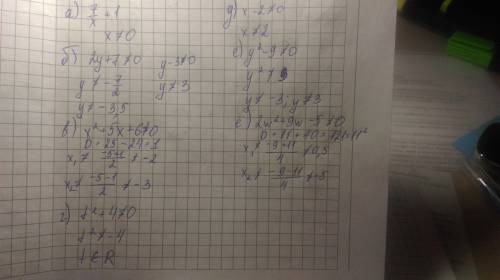 а) 7/x + 1
x≠0
б) 2y+7≠0 y-3≠0
y≠-7/2 y≠3
y≠-3,5
в) x²+5x+6≠0
D=25-24=1
x₁≠ -5+1/2 ≠-2
x₂≠ -5-1/2 ≠-3
г) t²+4≠0
t²≠-4
t∈R
x-2≠0
x≠2
y²-9≠0
y²≠9
y≠-3; y≠3
2w²+9w-5≠0
x₁≠ -9+11/4 ≠0,5
x₂≠ -9-11/4 ≠-5